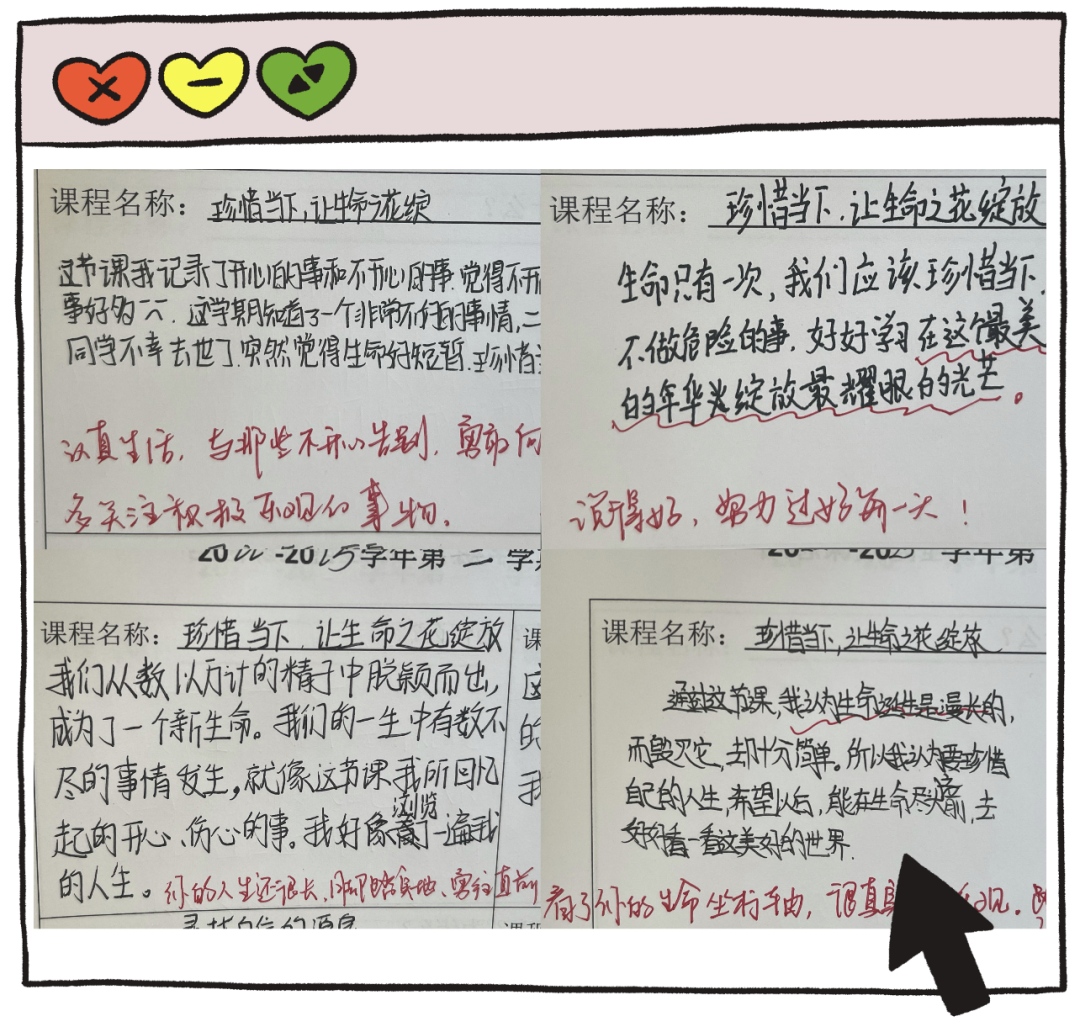 课程名称：珍惜当下,让生命之花绽
这节课我记录了开心的事和不开心的事.觉得不开
事好多一八.这学期知道了一个非常不好的事情,二
同学不幸去世了.突然觉得生命好短暂.珍惜
认真生活，与那些不开心告别，勇敢向
多关注积极乐观的事物.
课程名称：珍惜当下.让生命之花绽放
生命只有一次,我们应该珍惜当下.
不做危险的事.好好学习在这个最美
的年华光绽放最耀眼的光芒。
说得好，努力过好每一天！
学年第二学期
课程名称：珍惜当下.让生命之花绽放
我们从数以万计的精子中脱颖而出,
成为了一个新生命。我们的一生中有数不
尽的事情发生,就像这节课我所回忆
起的开心、伤心的事。我好像浏览了一遍我
的人生。
你的人生还很长,脚踏实地、勇往直前
寻找自信的源泉
学年第
课程名称：珍惜当下,让生命之花绽放
通过这节课,我认为生命诞生是漫长的,
而毁灭它,却十分简单。所以我认为要珍惜
自己的人生,希望以后,能在生命尽头前,去
好好看一看这美好的世界.
看了你的生命坐标轴，认真